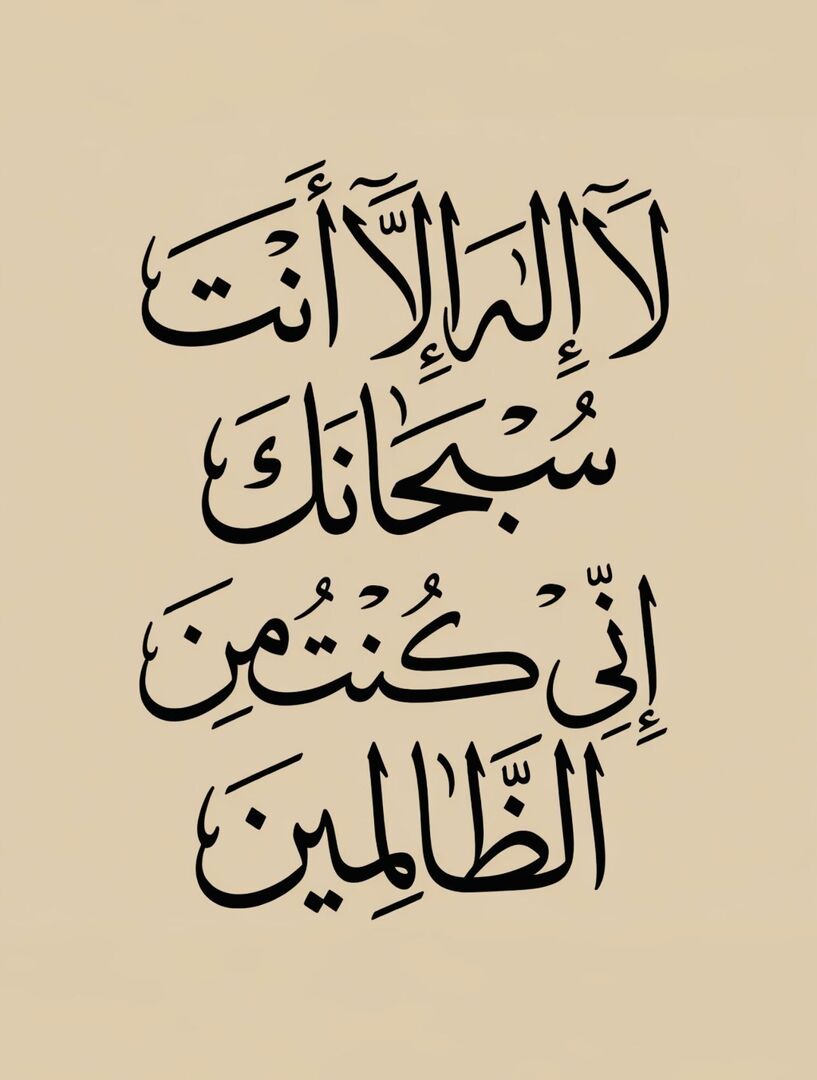 لَآ إِلَٰهَ إِلَّآ أَنْتَ
سُبْحَٰانَكَ
إِنِّيْ كُنْتُ مِنَ
الظَّٰالِمِينَ